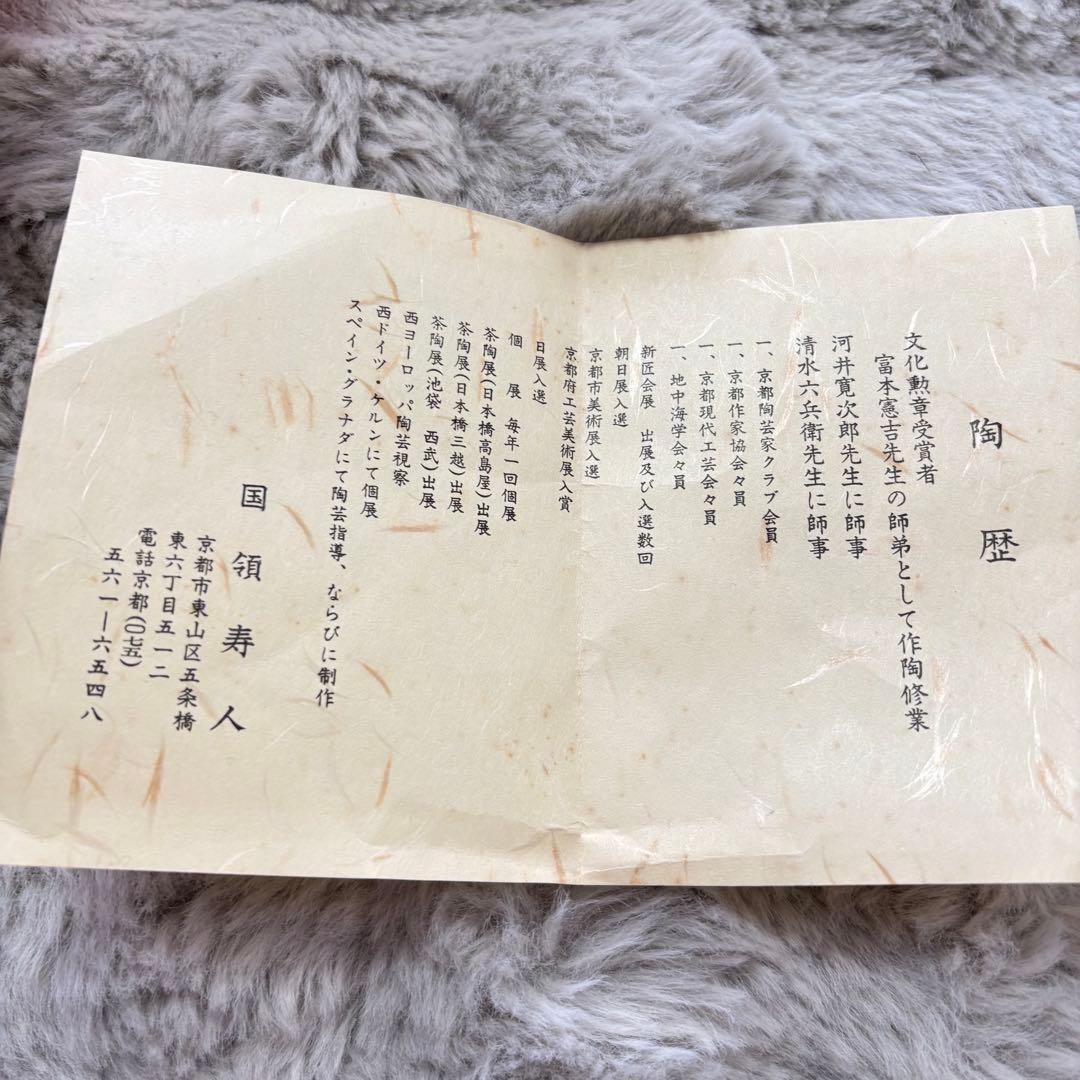 陶歴
文化勲章受賞者
富本憲吉先生の師弟として作陶修業
河井寛次郎先生に師事
清水六兵衛先生に師事
一、京都陶芸家クラブ会員
一、京都作家協会々員
一、京都現代工芸会々員
一、地中海学会々員
新匠会展 出展及び入選数回
朝日展入選
京都市美術展入選
京都府工芸美術展入賞
日展入選
個展 毎年一回個展
茶陶展(日本橋高島屋)出展
茶陶展(日本橋三越)出展
茶陶展(池袋 西武)出展
西ヨーロッパ陶芸視察
西ドイツ・ケルンにて個展
スペイン・グラナダにて陶芸指導、ならびに制作
国領寿人
京都市東山区五条橋
東六丁目五一二
電話京都(〇七五)
五六一―六五四八